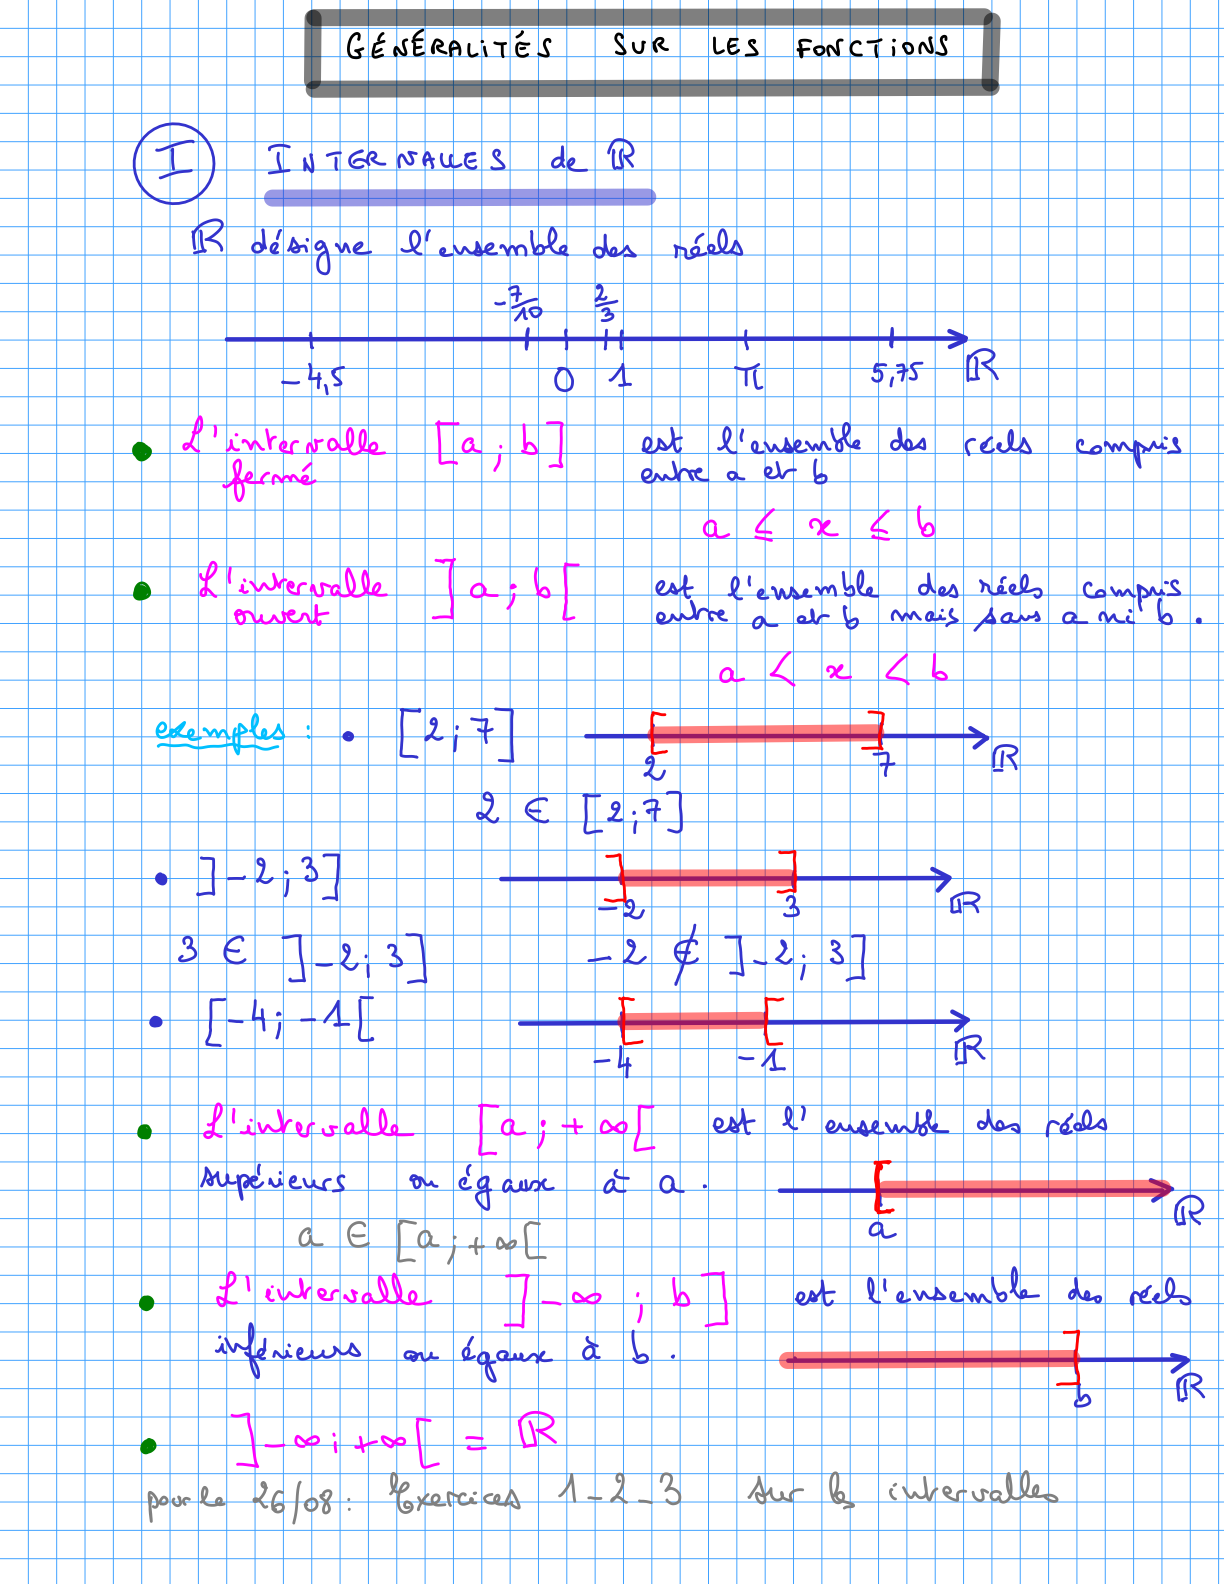 GÉNÉRALITÉS SUR LES FONCTIONS
I INTERVALLES de ℝ
ℝ désigne l'ensemble des réels
-7/10 2/3
-4,5 0 1 π 5,75 ℝ
• L'intervalle fermé [a ; b] est l'ensemble des réels compris
entre a et b
a ≤ x ≤ b
• L'intervalle ouvert ]a ; b[ est l'ensemble des réels compris
entre a et b mais sans a ni b.
a < x < b
exemples : • [2 ; 7]
2 7 ℝ
2 ∈ [2 ; 7]
• ]-2 ; 3]
-2 3 ℝ
3 ∈ ]-2 ; 3] -2 ∉ ]-2 ; 3]
• [-4 ; -1[
-4 -1 ℝ
• L'intervalle [a ; +∞[ est l'ensemble des réels
supérieurs ou égaux à a.
a ℝ
a ∈ [a ; +∞[
• L'intervalle ]-∞ ; b] est l'ensemble des réels
inférieurs ou égaux à b.
b ℝ
• ]-∞ ; +∞[ = ℝ
pour le 26/08 : Exercices 1-2-3 sur les intervalles